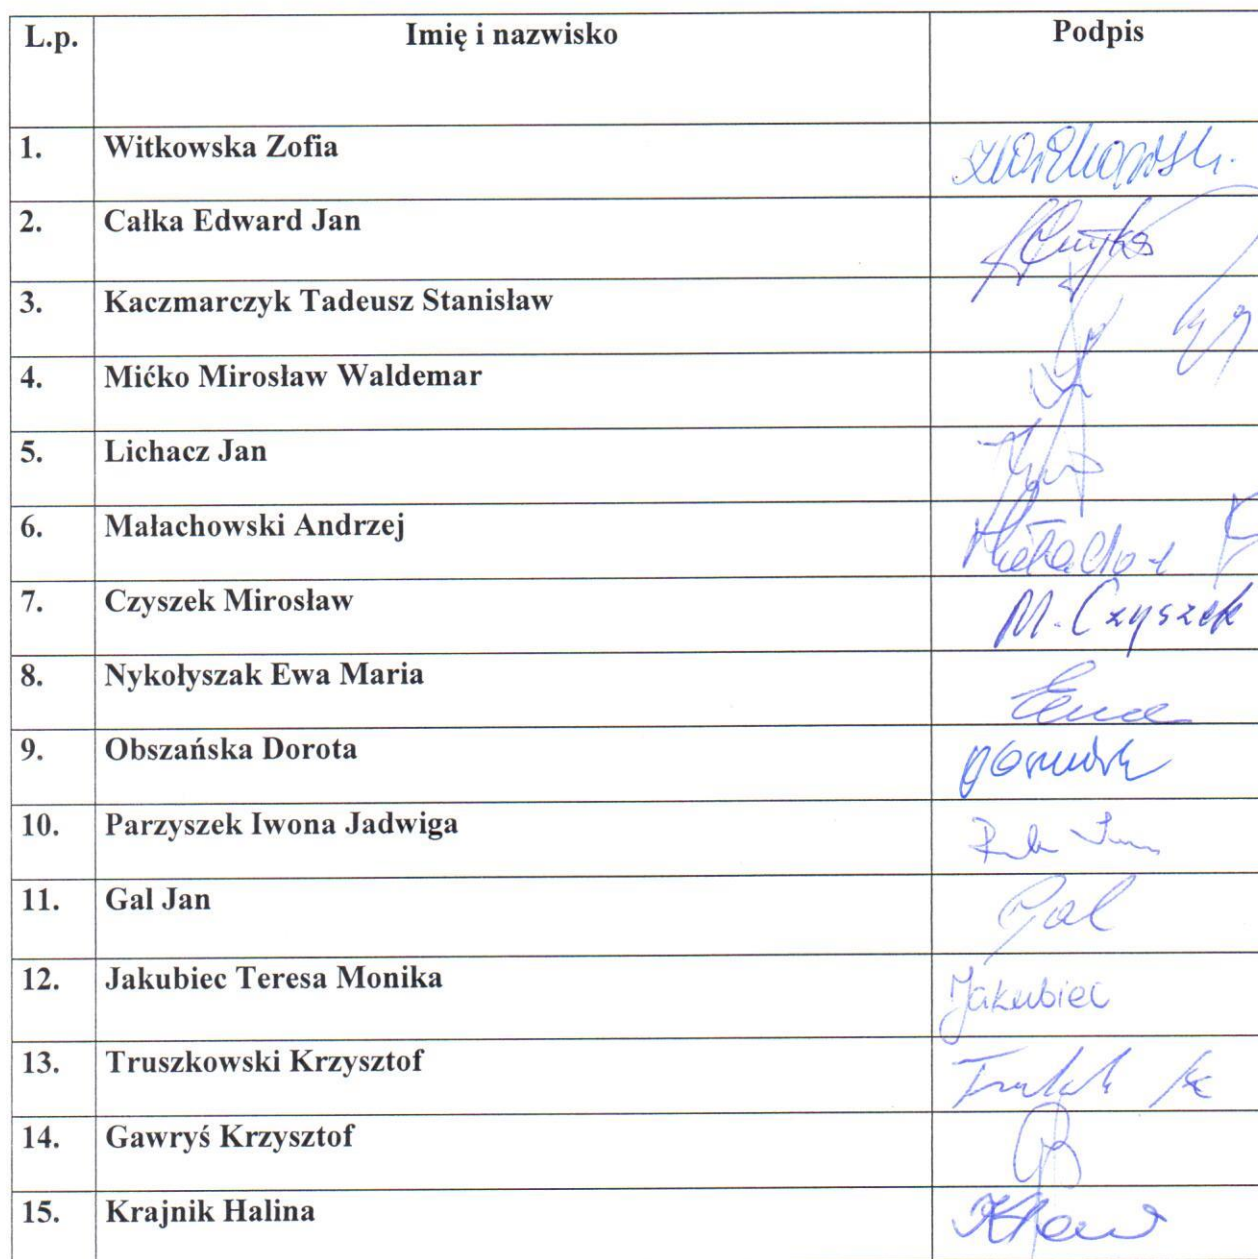 L.p. Imię i nazwisko Podpis
1. Witkowska Zofia
2. Całka Edward Jan
3. Kaczmarczyk Tadeusz Stanisław
4. Mićko Mirosław Waldemar
5. Lichacz Jan
6. Małachowski Andrzej
7. Czyszek Mirosław M. Czyszek
8. Nykołyszak Ewa Maria
9. Obszańska Dorota
10. Parzyszek Iwona Jadwiga
11. Gal Jan Gal
12. Jakubiec Teresa Monika Jakubiec
13. Truszkowski Krzysztof
14. Gawryś Krzysztof
15. Krajnik Halina